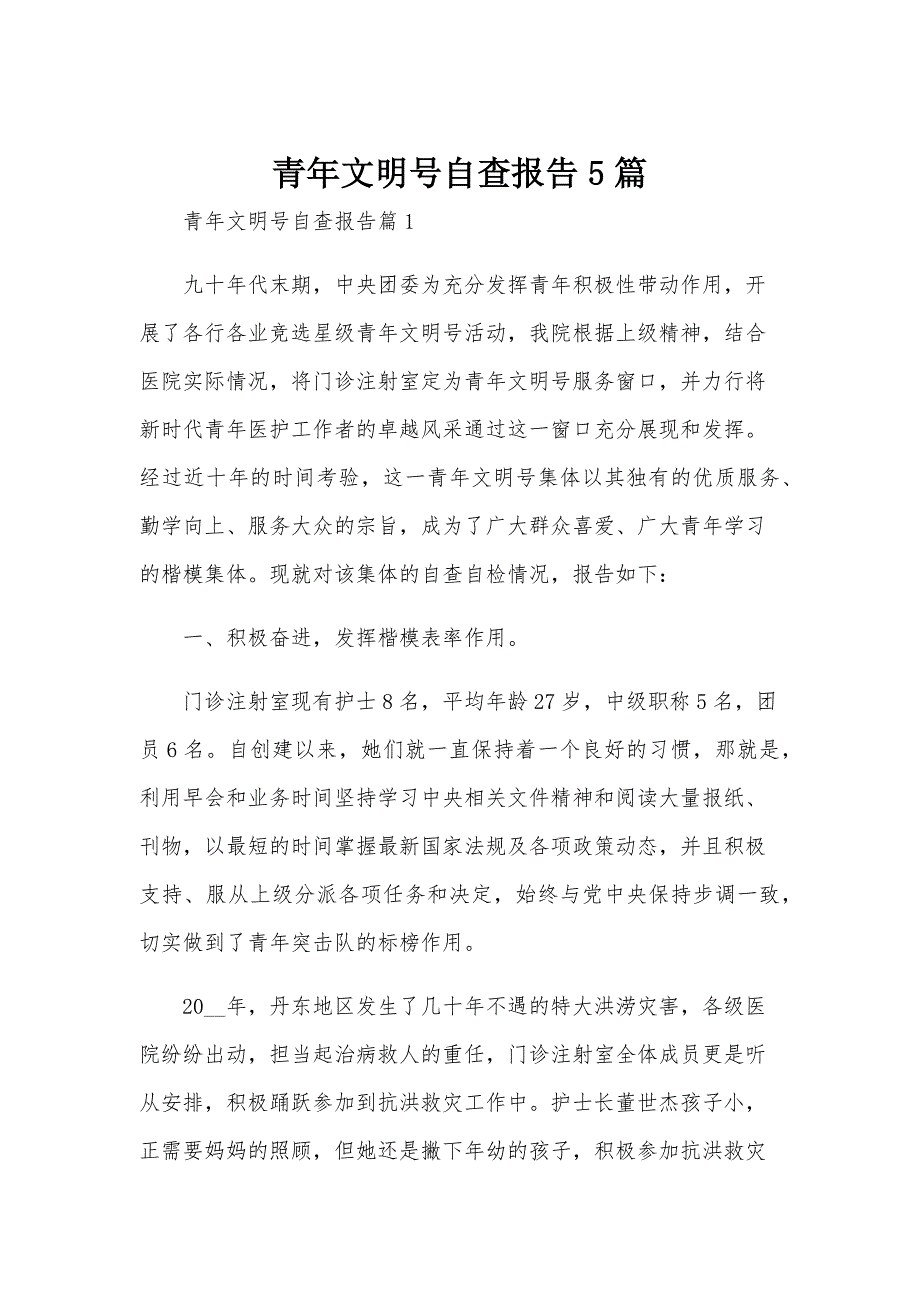 青年文明号自查报告 5 篇
青年文明号自查报告篇 1
九十年代末期，中央团委为充分发挥青年积极性带动作用，开
展了各行各业竞选星级青年文明号活动，我院根据上级精神，结合
医院实际情况，将门诊注射室定为青年文明号服务窗口，并力行将
新时代青年医护工作者的卓越风采通过这一窗口充分展现和发挥。
经过近十年的时间考验，这一青年文明号集体以其独有的优质服务、
勤学向上、服务大众的宗旨，成为了广大群众喜爱、广大青年学习
的楷模集体。现就对该集体的自查自检情况，报告如下：
一、积极奋进，发挥楷模表率作用。
门诊注射室现有护士 8 名，平均年龄 27 岁，中级职称 5 名，团
员 6 名。自创建以来，她们就一直保持着一个良好的习惯，那就是，
利用早会和业务时间坚持学习中央相关文件精神和阅读大量报纸、
刊物，以最短的时间掌握最新国家法规及各项政策动态，并且积极
支持、服从上级分派各项任务和决定，始终与党中央保持步调一致，
切实做到了青年突击队的标榜作用。
20__年，丹东地区发生了几十年不遇的特大洪涝灾害，各级医
院纷纷出动，担当起治病救人的重任，门诊注射室全体成员更是听
从安排，积极踊跃参加到抗洪救灾工作中。护士长董世杰孩子小，
正需要妈妈的照顾，但她还是撇下年幼的孩子，积极参加抗洪救灾